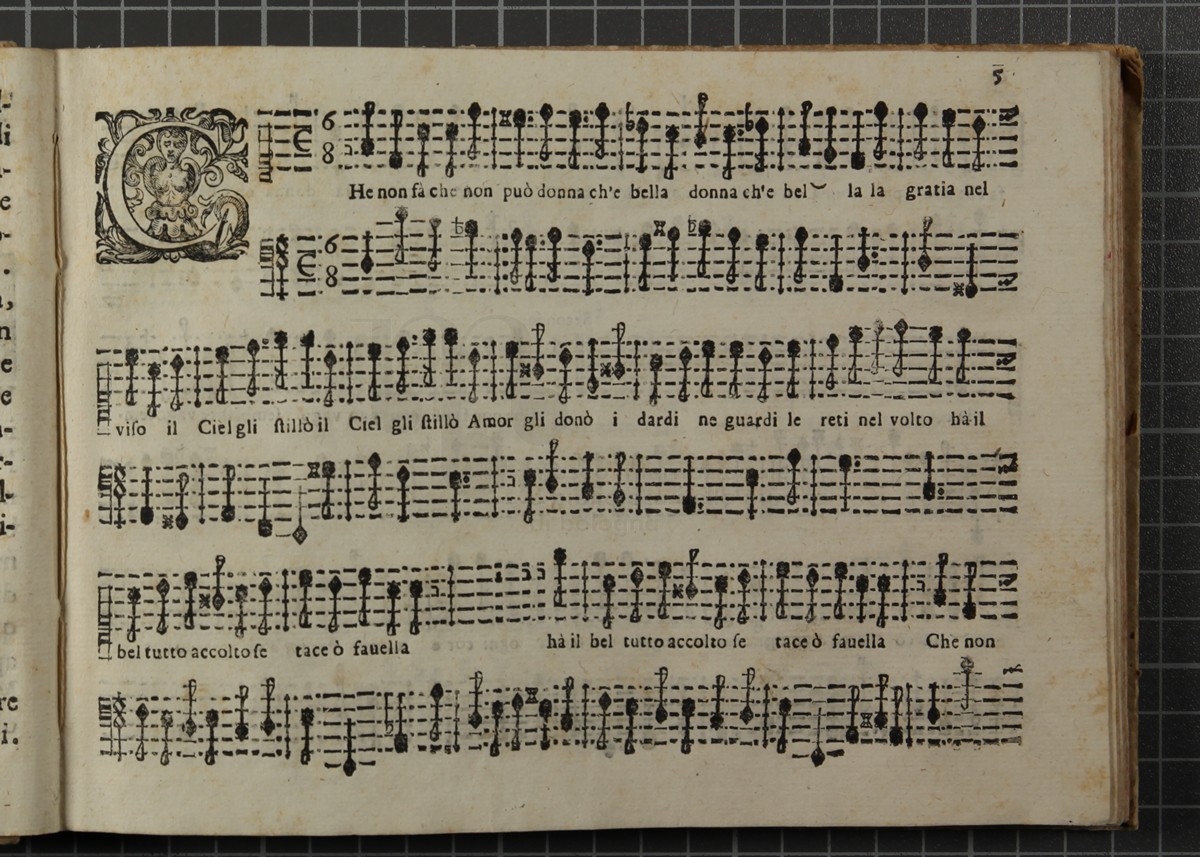 5
C
6
8
He non fà che non può donna ch'e bella donna ch'e bel la la gratia nel
6
8
viso il Ciel gli stillò il Ciel gli stillò Amor gli donò i dardi ne guardi le reti nel volto hà il
bel tutto accolto se tace ò fauella hà il bel tutto accolto se tace ò fauella Che non